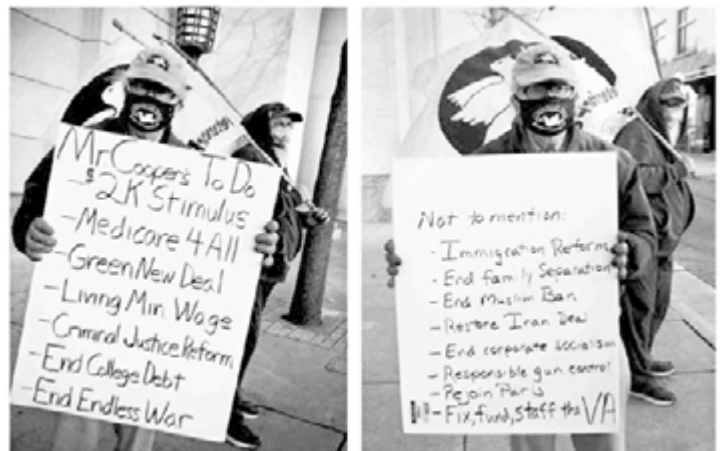 Mr Coopers To Do
- $2K Stimulus
- Medicare 4 All
- Green New Deal
- Living Min Wage
- Criminal Justice Reform
- End College Debt
- End Endless War
Not to mention:
- Immigration Reform
- End family Separation
- End Muslim Ban
- Restore Iran Deal
- End corporate socialism
- Responsible gun control
- Rejoin Paris
- Fix, fund, staff the VA